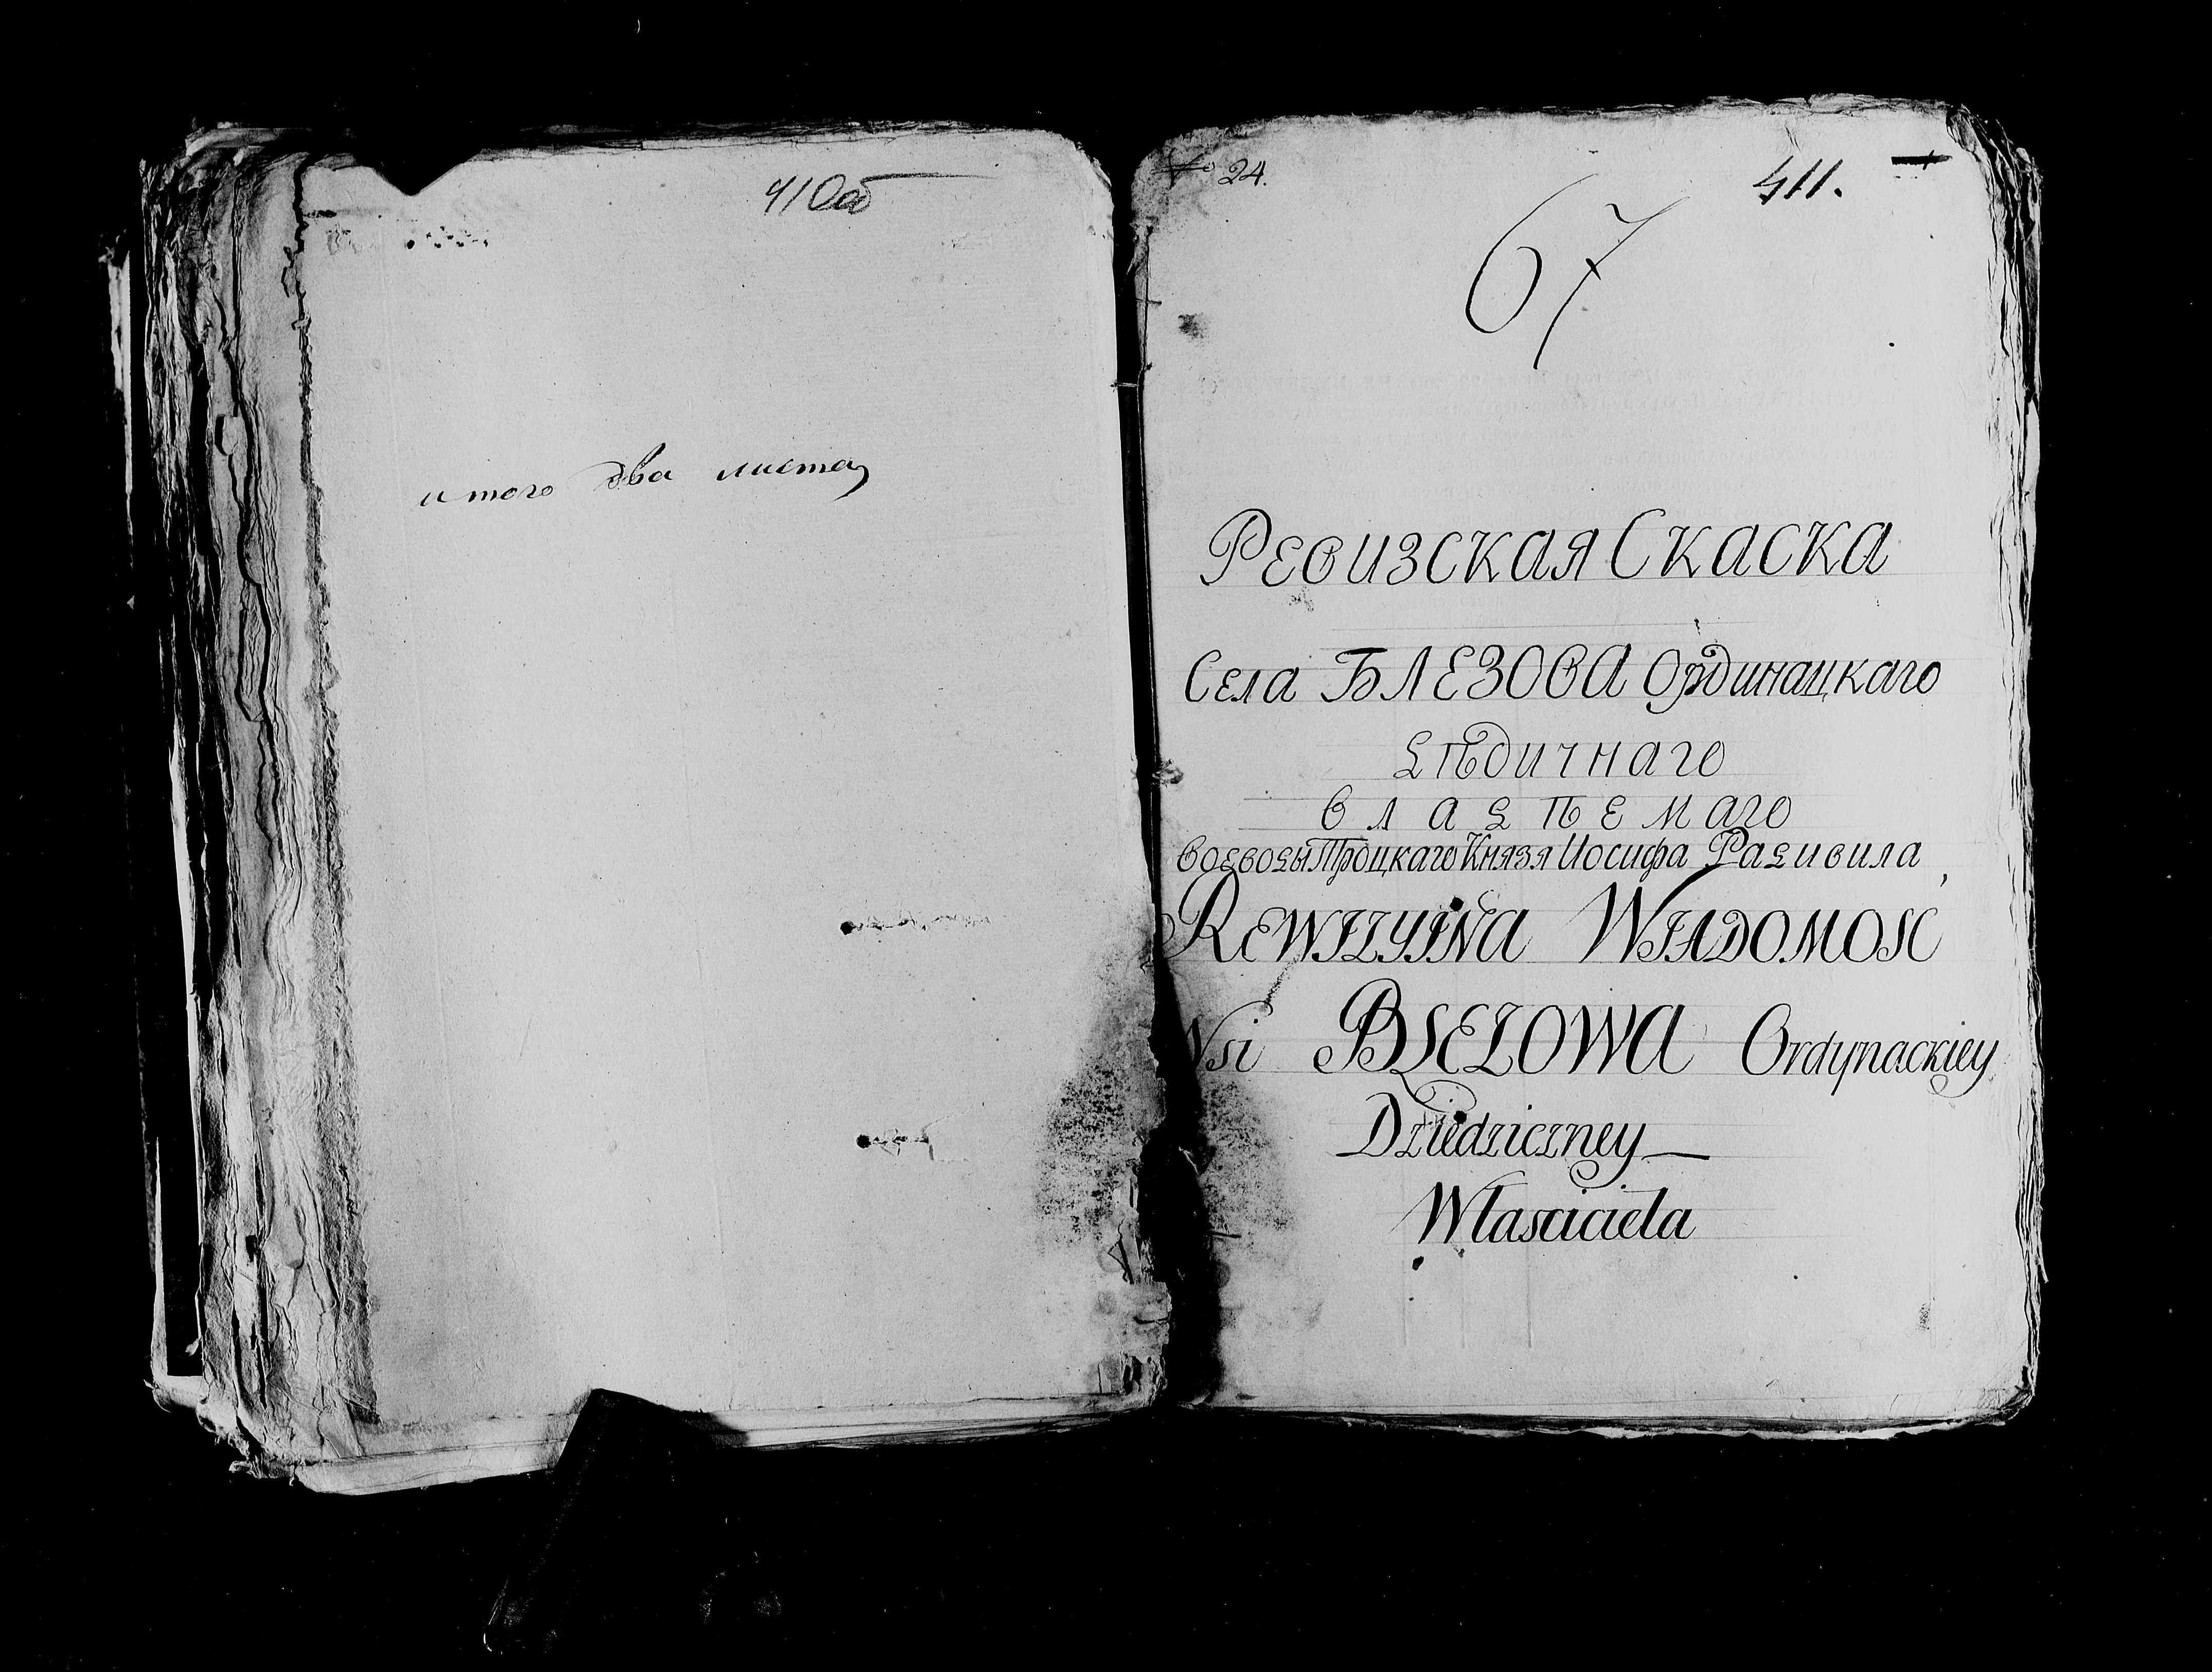 410об
итого два листа
№ 24.
411.
67
Ревизская Скаска
Села БЛЕЗОВА Ординацкаго
Дѣдичнаго
владѣемаго
воеводы Троцкаго Князя Иосифа Радивила
REWIZYINA WIADOMOSC
Wsi BLEZOWA Ordynackiey
Dziedziczney
Wlasciciela